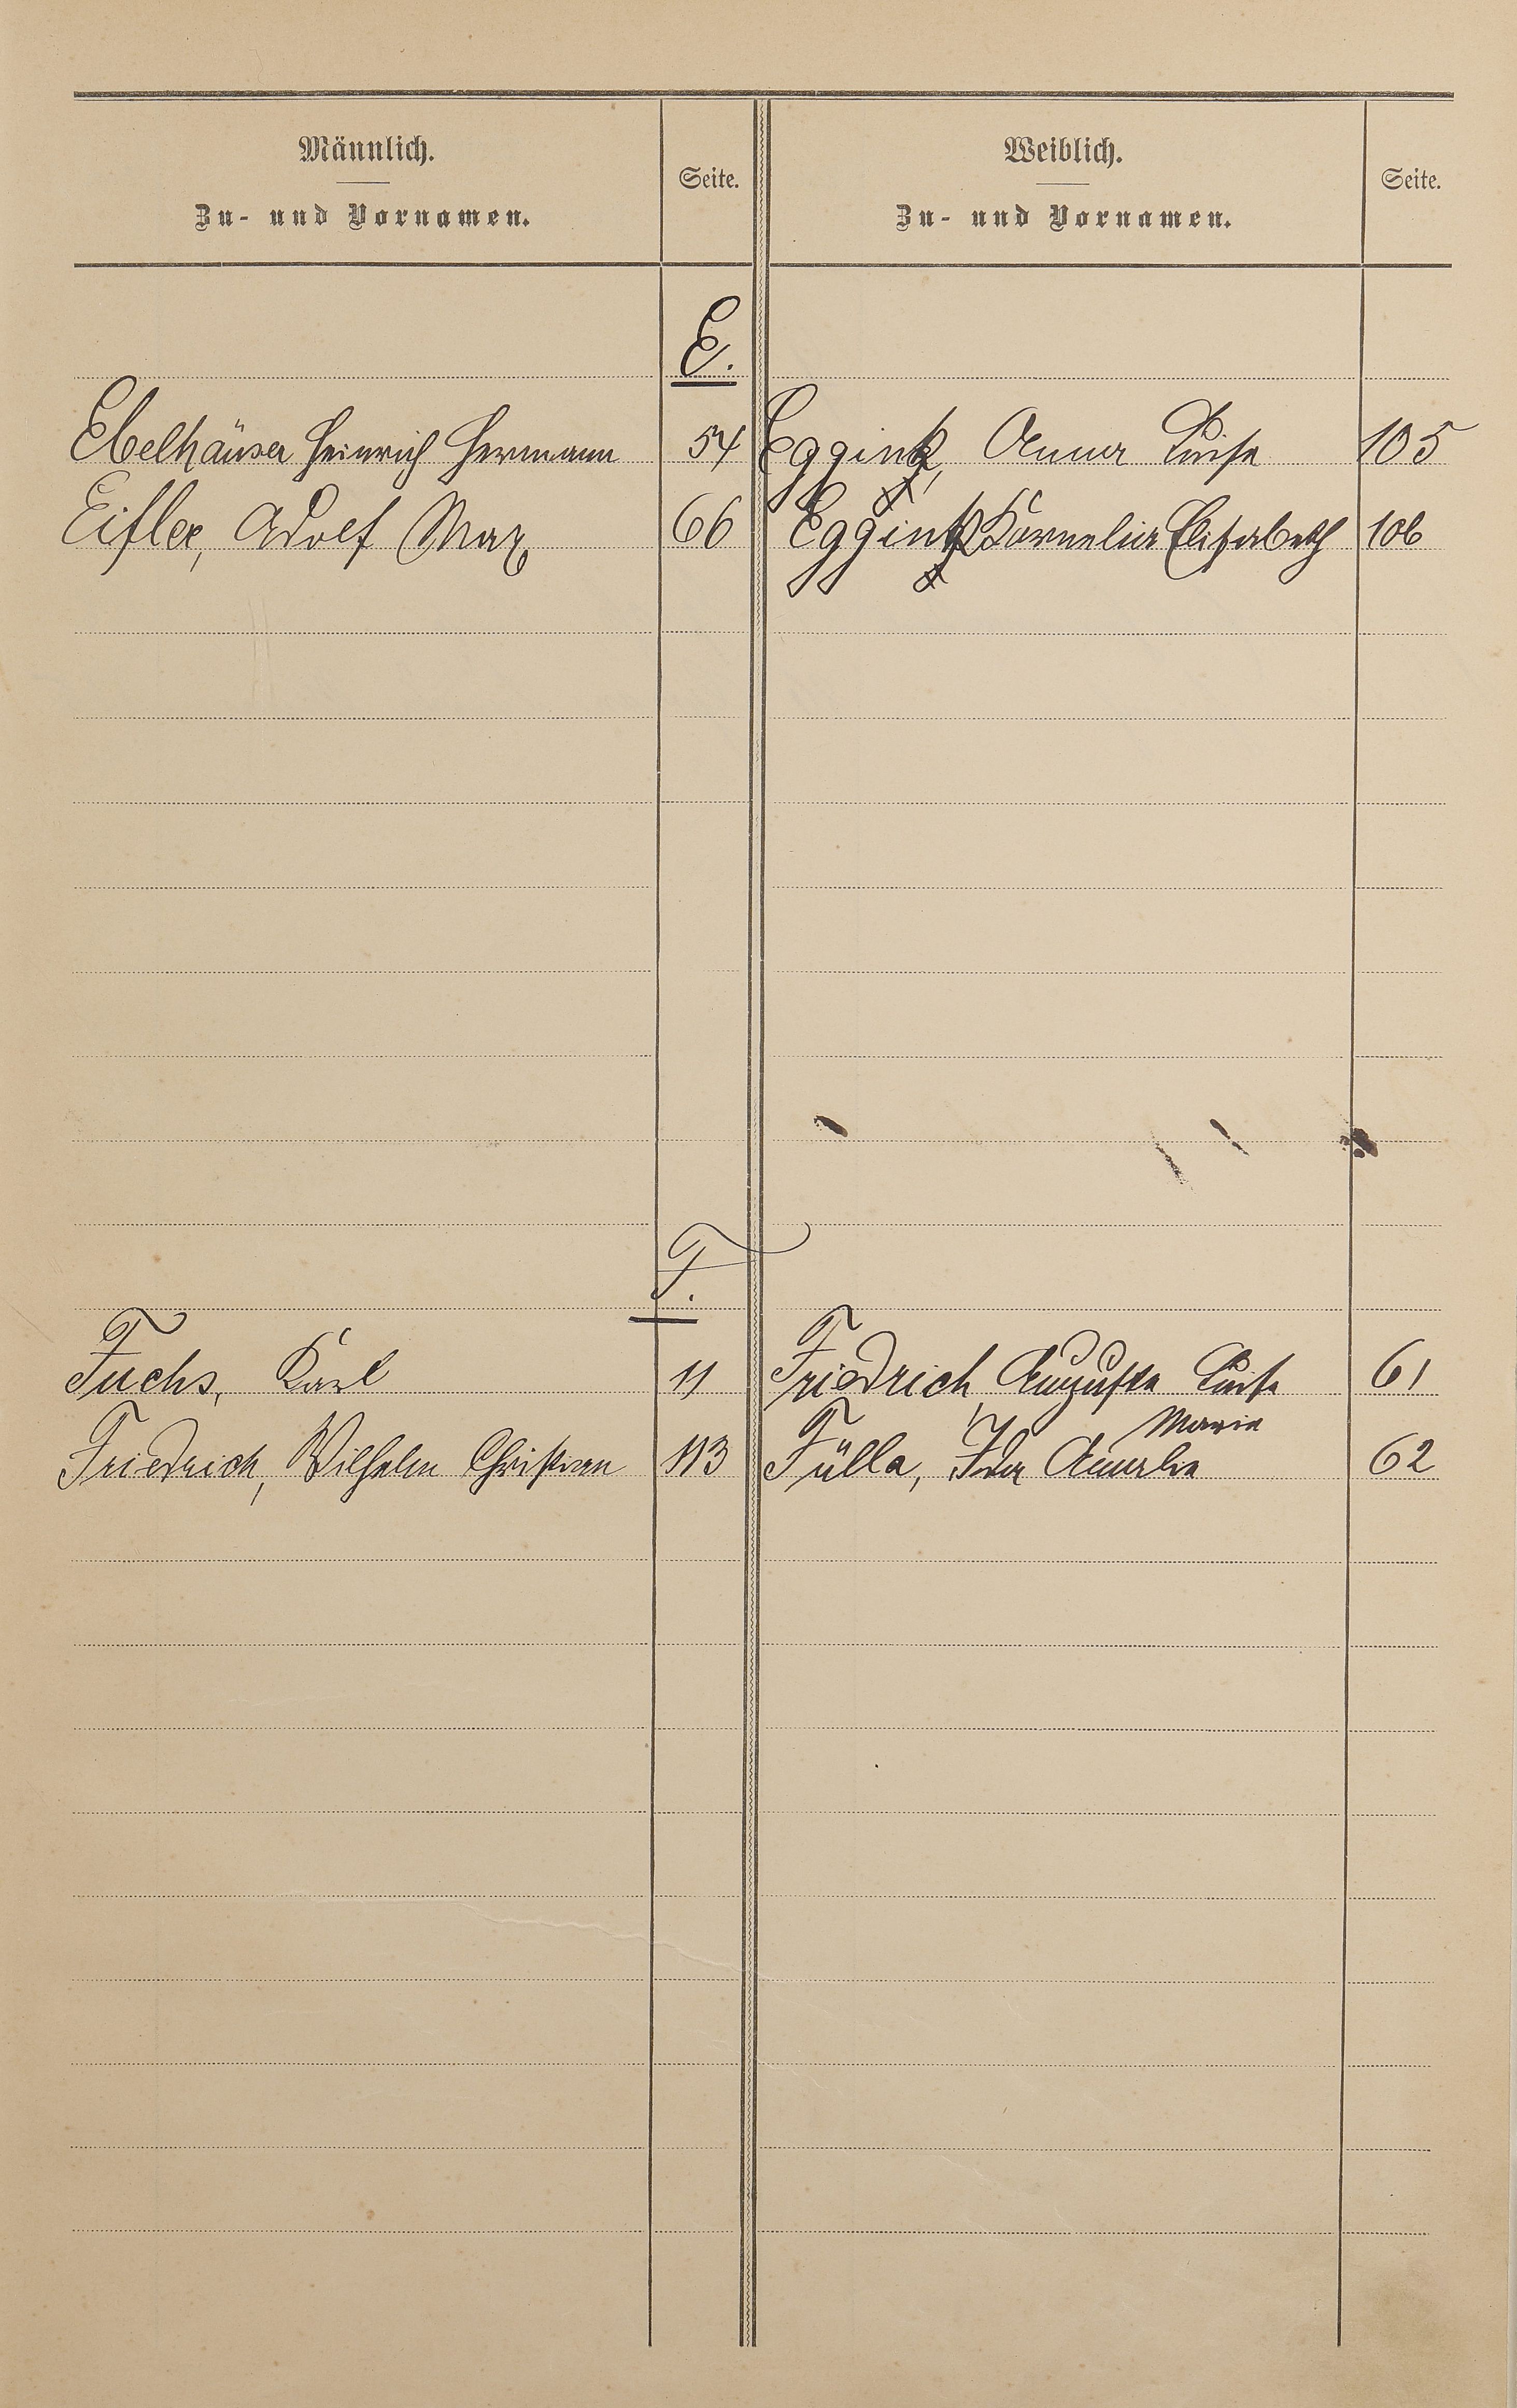 Männlich.
Zu- und Vornamen.
Seite.
Weiblich.
Zu- und Vornamen.
Seite.
E.
Ebelhäuser Heinrich Hermann 54 Eggink, Anna Luise 105
Eifler, Adolf Max 66 Eggink Kornelia Elisabeth 106
F.
Fuchs, Karl 11 Friedrich, Auguste Luise 61
Marie
Friedrich, Wilhelm Christian 113 Fülla, Ida Amalie 62